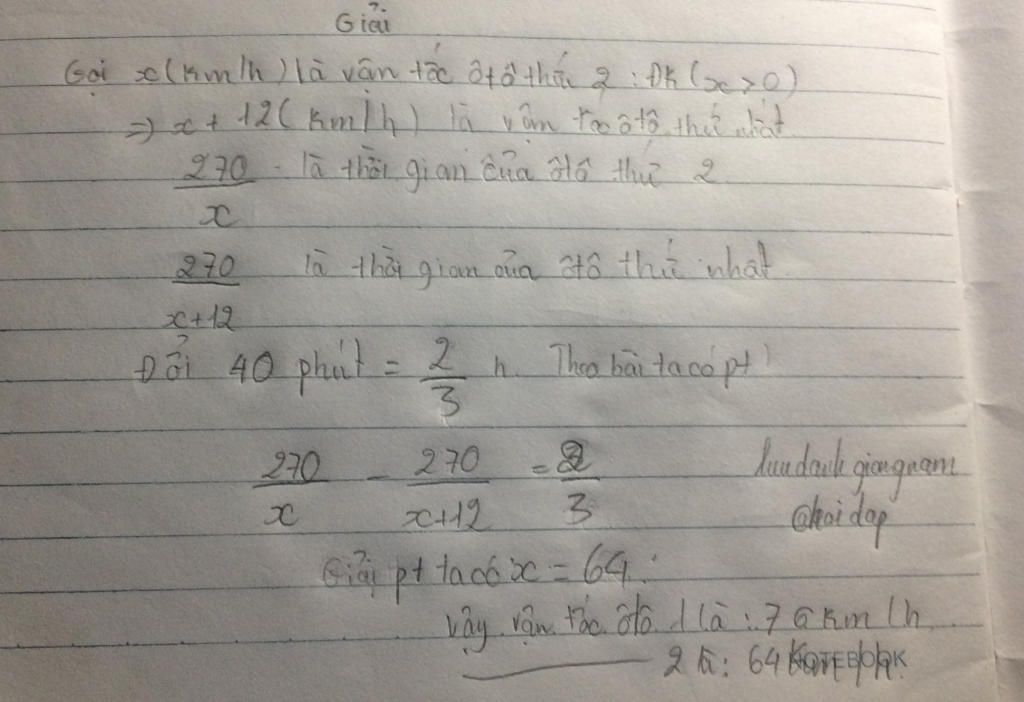 Giải
Gọi x(km/h) là vận tốc ôtô thứ 2 : ĐK (x > 0)
=> x + 12 ( km/h ) là vận tốc ôtô thứ nhất
270/x là thời gian của ôtô thứ 2
270/x+12 là thời gian của ôtô thứ nhất
Đổi 40 phút = 2/3 h. Theo bài ta có pt
270/x - 270/x+12 = 2/3
luudanhgiangnam
@hoidap
Giải pt ta có x = 64.
Vậy vận tốc ôtô 1 là : 76 km/h
2 là : 64 km/h.
NOTEBOOK